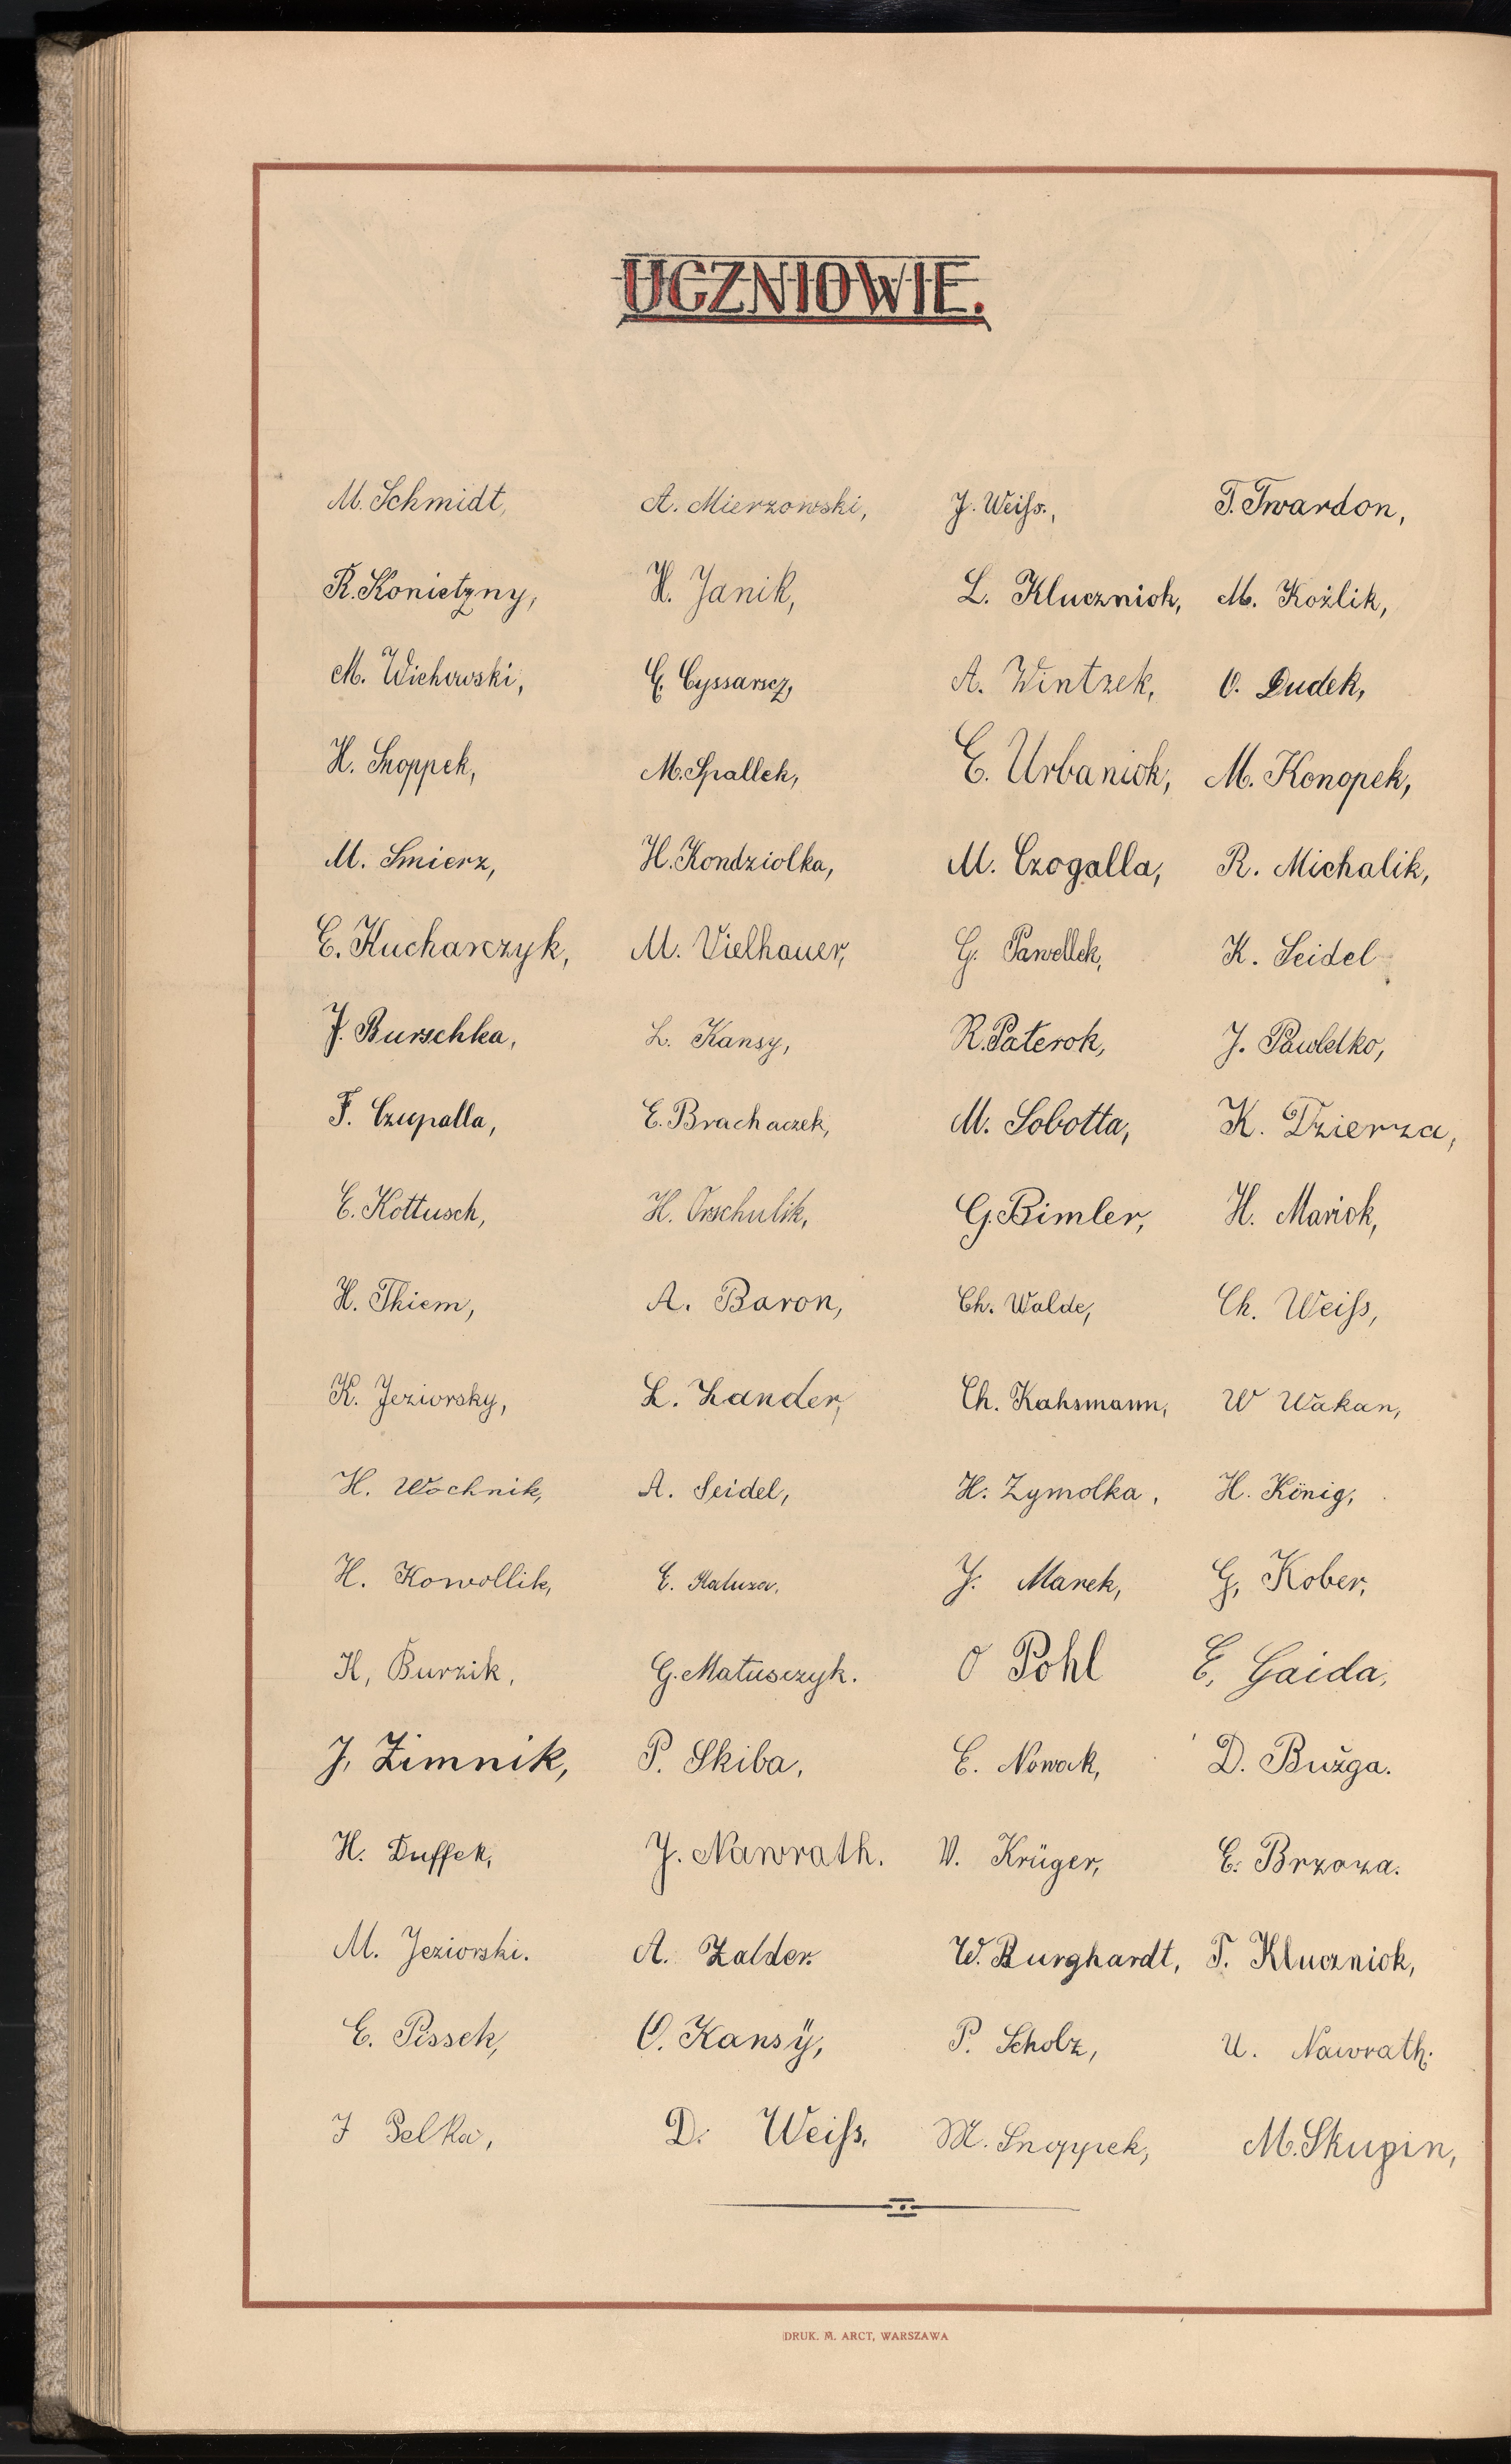 UCZNIOWIE.
M. Schmidt, A. Mierzowski, J. Weiſs., T. Twardon,
R. Konietzny, H. Janik, L. Kluczniok, M. Koźlik,
M. Wichowski, E. Cyssarscz, A. Wintzek, O. Dudek,
H. Snoppek, M. Spallek, E. Urbaniok, M. Konopek,
M. Smierz, H. Kondziolka, M. Czogalla, R. Michalik,
E. Kucharczyk, M. Vielhauer, G. Pawellek, K. Seidel
J. Burschka, L. Kansy, R. Paterok, J. Pawletko,
F. Czupalla, E. Brachaczek, M. Sobotta, K. Dzierza,
E. Kottusch, H. Orschulik, G. Bimler, H. Mariok,
H. Thiem, A. Baron, Ch. Walde, Ch. Weiſs,
K. Jeziorsky, L. Zander, Ch. Kahsmann, W Wakan,
H. Wochnik, A. Seidel, H. Zymolka, H. König,
H. Kowollik, E. Kaluza, J. Marek, G, Kober,
H, Burzik, G. Matusczyk. O Pohl E, Gaida,
J, Zimnik, P. Skiba, E. Nowak, D. Bużga.
H. Duffek, J. Nawrath. W. Krüger, E. Brzoza.
M. Jeziorski. A. Zalder. W. Burghardt, T. Kluczniok,
E. Pissek, O. Kansÿ, P. Scholz, U. Nawrath.
J Pelka, D. Weiſs, M. Snoppek, M. Skupin,
DRUK. M. ARCT, WARSZAWA